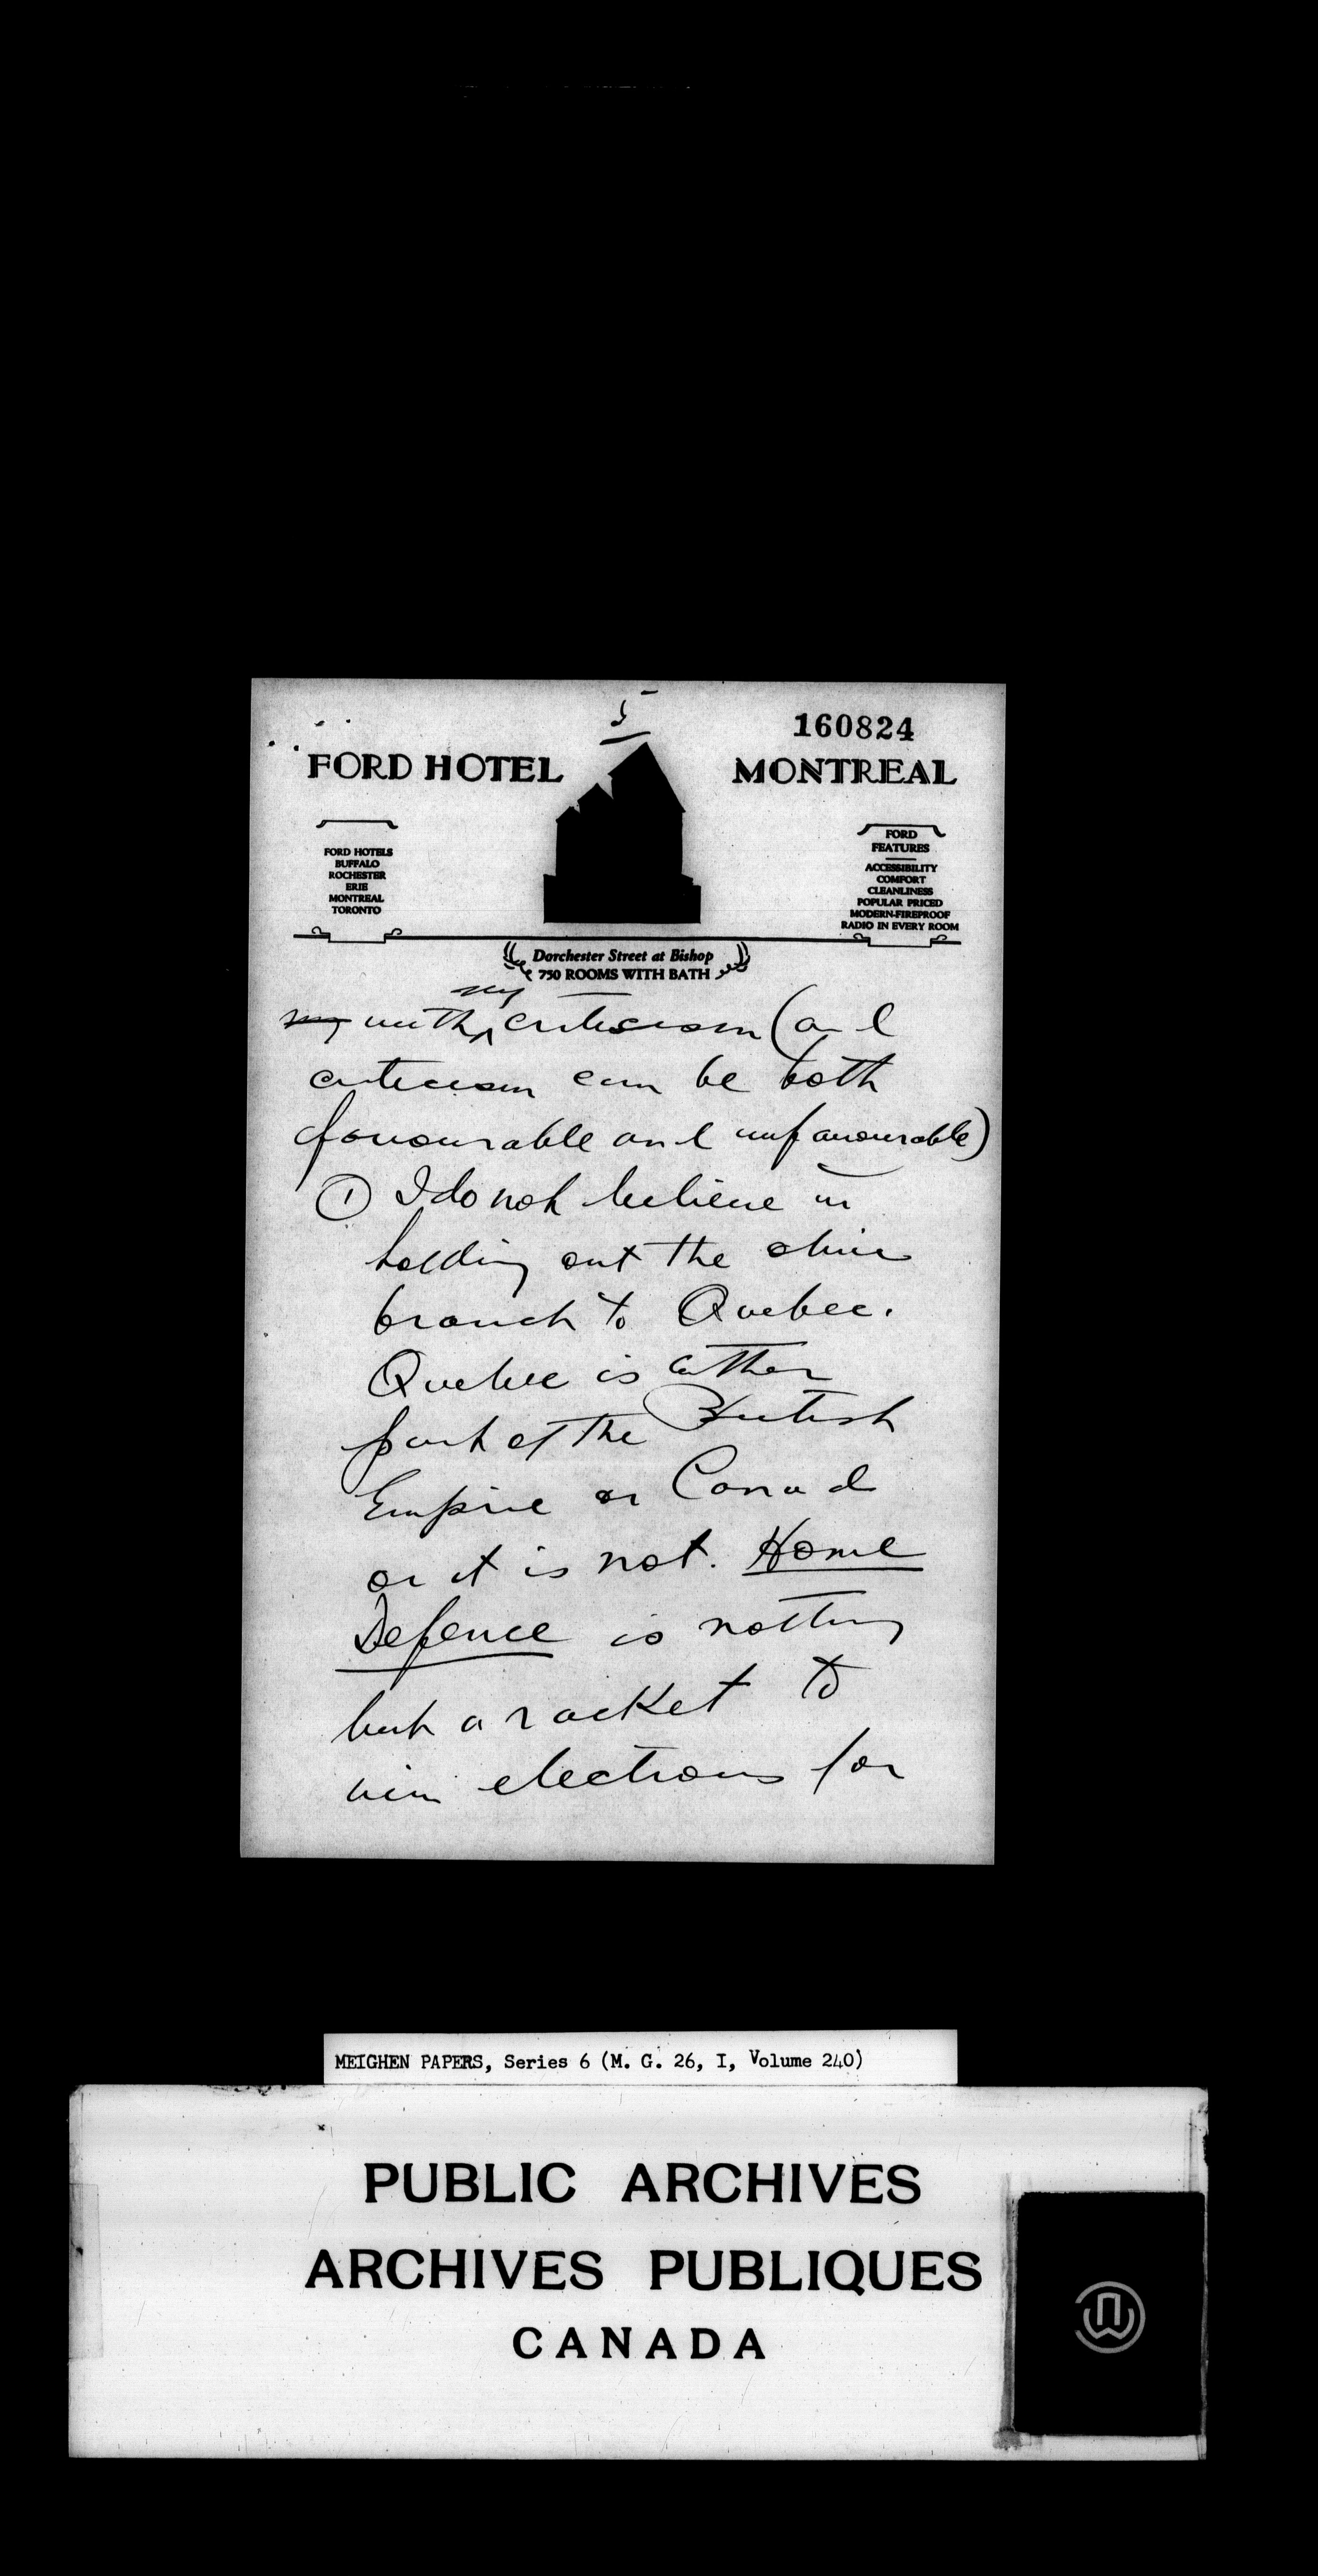 5
160824
FORD HOTEL
MONTREAL
FORD HOTELS
BUFFALO
ROCHESTER
ERIE
MONTREAL
TORONTO
FORD
FEATURES
ACCESSIBILITY
COMFORT
CLEANLINESS
POPULAR PRICED
MODERN-FIREPROOF
RADIO IN EVERY ROOM
Dorchester Street at Bishop
750 ROOMS WITH BATH
my
my with criticism (and
criticism can be both
favourable and unfavourable)
① I do not believe in
holding out the olive
branch to Quebec.
Quebec is either
part of the British
Empire or Canad
or it is not. Home
Defence is nothing
but a racket to
win elections for
MEIGHEN PAPERS, Series 6 (M. G. 26, I, Volume 240)
PUBLIC ARCHIVES
ARCHIVES PUBLIQUES
CANADA